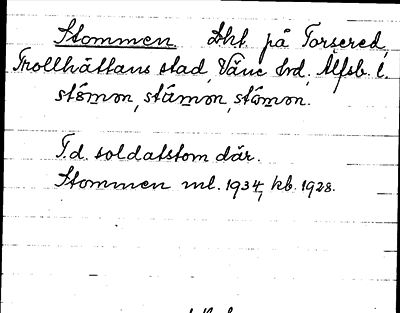 Stommen. Lht. på Torsered,
Trollhättans stad, Väne hrd, Älfsb. l.
stŏmɔn, stámɔn, stŏmɔn.
F.d. soldatstom där.
Stommen ml. 1934, kb. 1928.